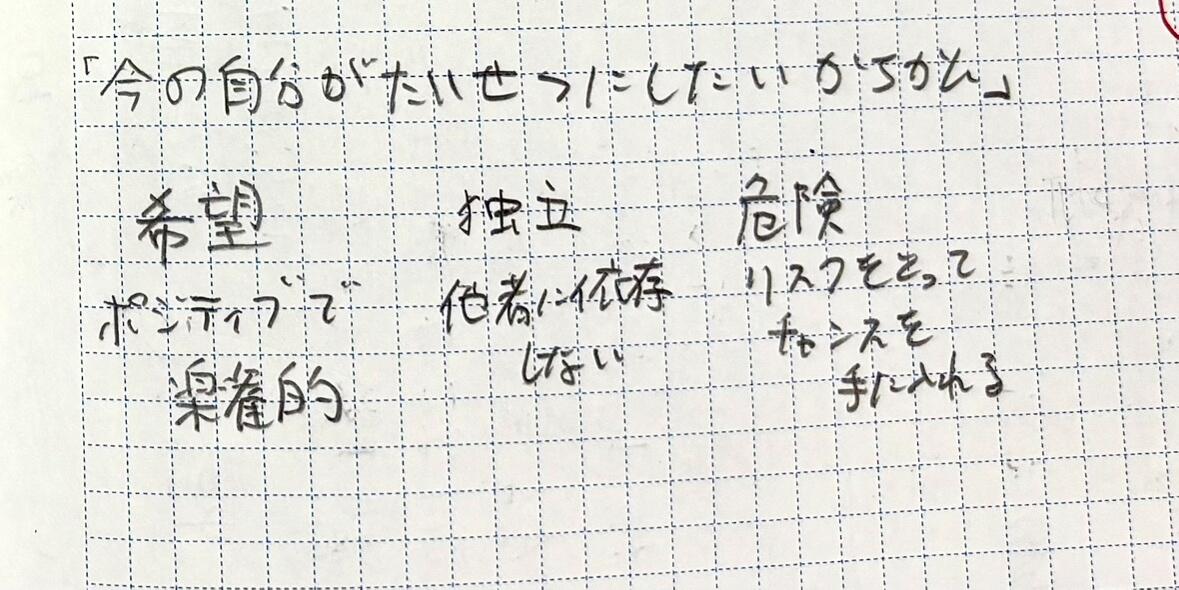 「今の自分がたいせつにしたいかちかん」
希望
ポジティブで
楽着的
独立
他者に依存
しない
危険
リスクをとって
チャンスを
手に入れる